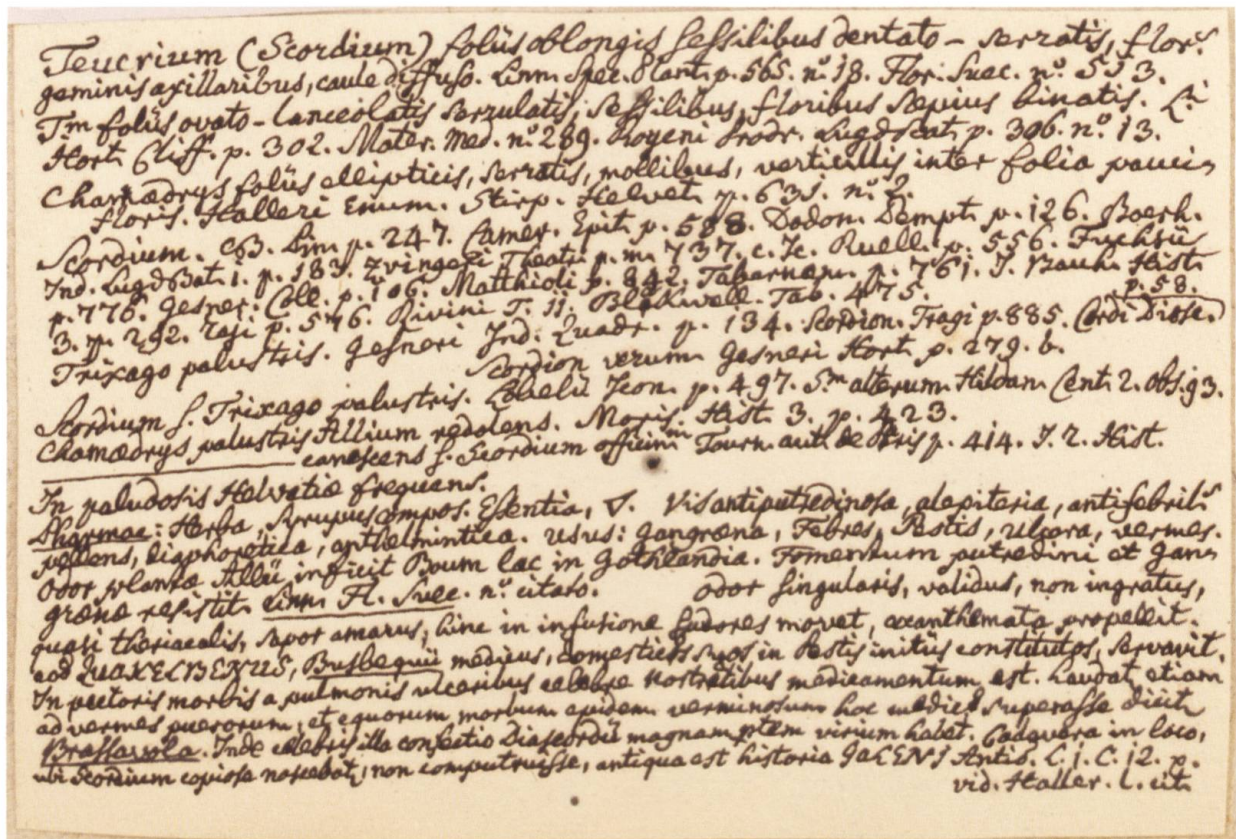 Teucrium (Scordium) foliis oblongis sessilibus dentato-serratis, flor.
geminis axillaribus, caule diffuso. Linn. Spec. Plant. p. 565. n.º 18. Flor. Suec. n.º
Tm foliis ovato-lanceolatis serrulatis, sessilibus, floribus sæpius binatis. Li
Hort. Cliff. p. 302. Mater. Med. n.º 289. Royeni Prodr. LugdBat. p. 306. n.º 13.
Chamædrys foliis ellipticis, serratis, mollibus, verticillis inter folia pauci-
floris. Halleri Enum. Stirp. Helvet. p. 635. n.º 2.
Scordium. CB. Pin. p. 247. Camer. Epit. p. 588. Dodon. Pempt. p. 126. Boerh.
Ind. LugdBat. 1. p. 183. Zvingeri Theatr. p. m. 737. c. Ic. Ruell. p. 556. Fuchsii
p. 776. Gesner. Coll. p. 106. Matthioli p. 842. Tabernæm. p. 761. J. Bauh. Hist.
3. p. 292. Raji p. 576. Rivini T. 11. Blakwell. Tab. 475. p. 58.
Trixago palustris. Gesneri Ind. Quadr. p. 134. Scordion. Tragi p. 885. Cordi Diosc.
Scordion verum Gesneri Hort. p. 279. b.
Scordium s. Trixago palustris. Lobelii Icon. p. 497. Sm alterum. Hildan. Cent. 2. Obs. 93.
Chamædrys palustris Allium redolens. Moris. Hist. 3. p. 423.
canescens s. Scordium officin. Tourn. aut. de Paris p. 414. T. 2. Hist.
In paludosis Helvetiæ frequens.
Pharmac: Herba, Syrupus compos. Essentia, Vis antiputredinosa, alexiteria, antifebrilis
pellens, diaphoretica, anthelmintica. Usus: Gangræna, Febres, Pestis, Ulcera, vermes.
Odor plantæ Allii inficit Boum lac in Gothlandia. Fomentum putredini et Gan-
grænæ resistit. Linn. Fl. Suec. n.º citato. Odor singularis, validus, non ingratus,
quasi theriacalis, sapor amarus, hinc in infusione sudores movet, exanthemata propellit.
eod QUAKELBENUS, Busbequii medicus, domesticos suos in Pestis initiis constitutos, servavit.
In pectoris morbis a pulmonis ulceribus celebre Nostratibus medicamentum est. Laudat etiam
ad vermes puerorum, et equorum morbum epidem. verminosum hoc medic. superasse dicit
Brassavola. Inde celebris illa confectio Diascordii magnam ptem virium habet. Cadavera in loco,
ubi Scordium copiose nascebat, non computruisse, antiqua est historia GALENI Antid. L. 1. C. 12. p.
vid. Haller. l. cit.